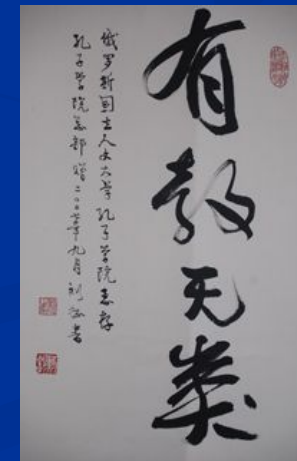 有教无类
俄罗斯国立人文大学孔子学院惠存
孔子学院总部赠二〇〇七年九月刘